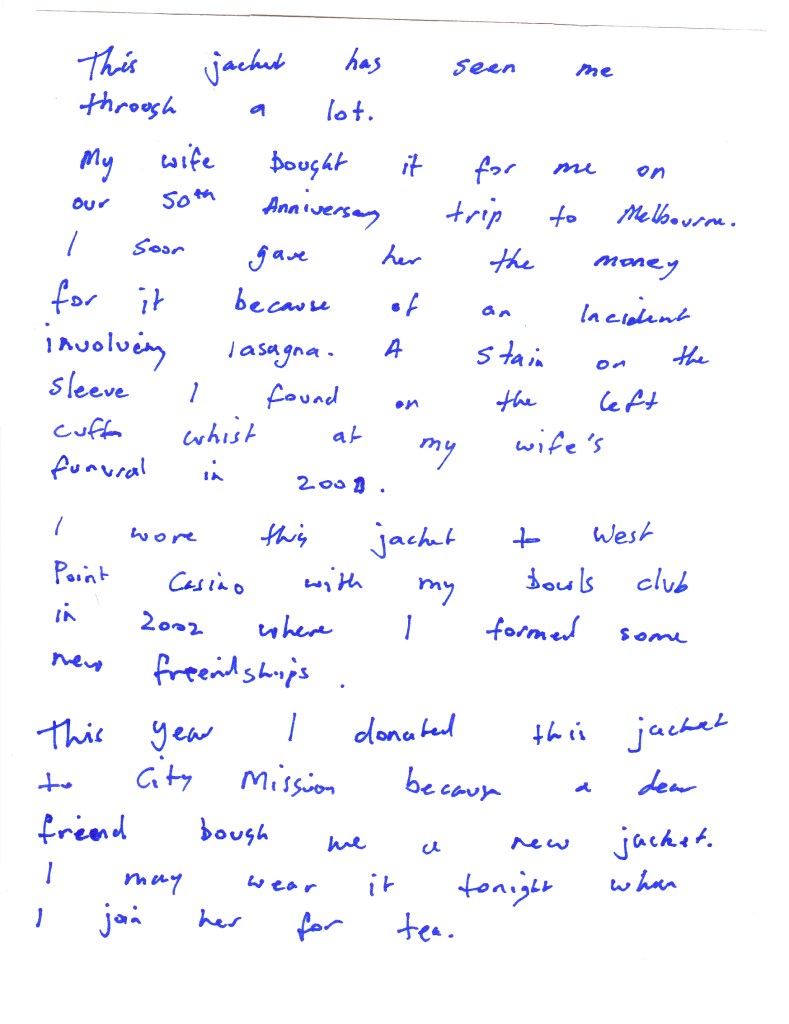 This jacket has seen me
through a lot.
My wife bought it for me on
our 50th Anniversary trip to Melbourne.
I soon gave her the money
for it because of an incident
involving lasagna. A stain on the
sleeve I found on the left
cuff whist at my wife's
funural in 2001.
I wore this jacket to West
Point Casino with my Bowls club
in 2002 where I formed some
new freendships.
This year I donated this jacket
to City Mission because a dear
friend bough me a new jacket.
I may wear it tonight when
I join her for tea.